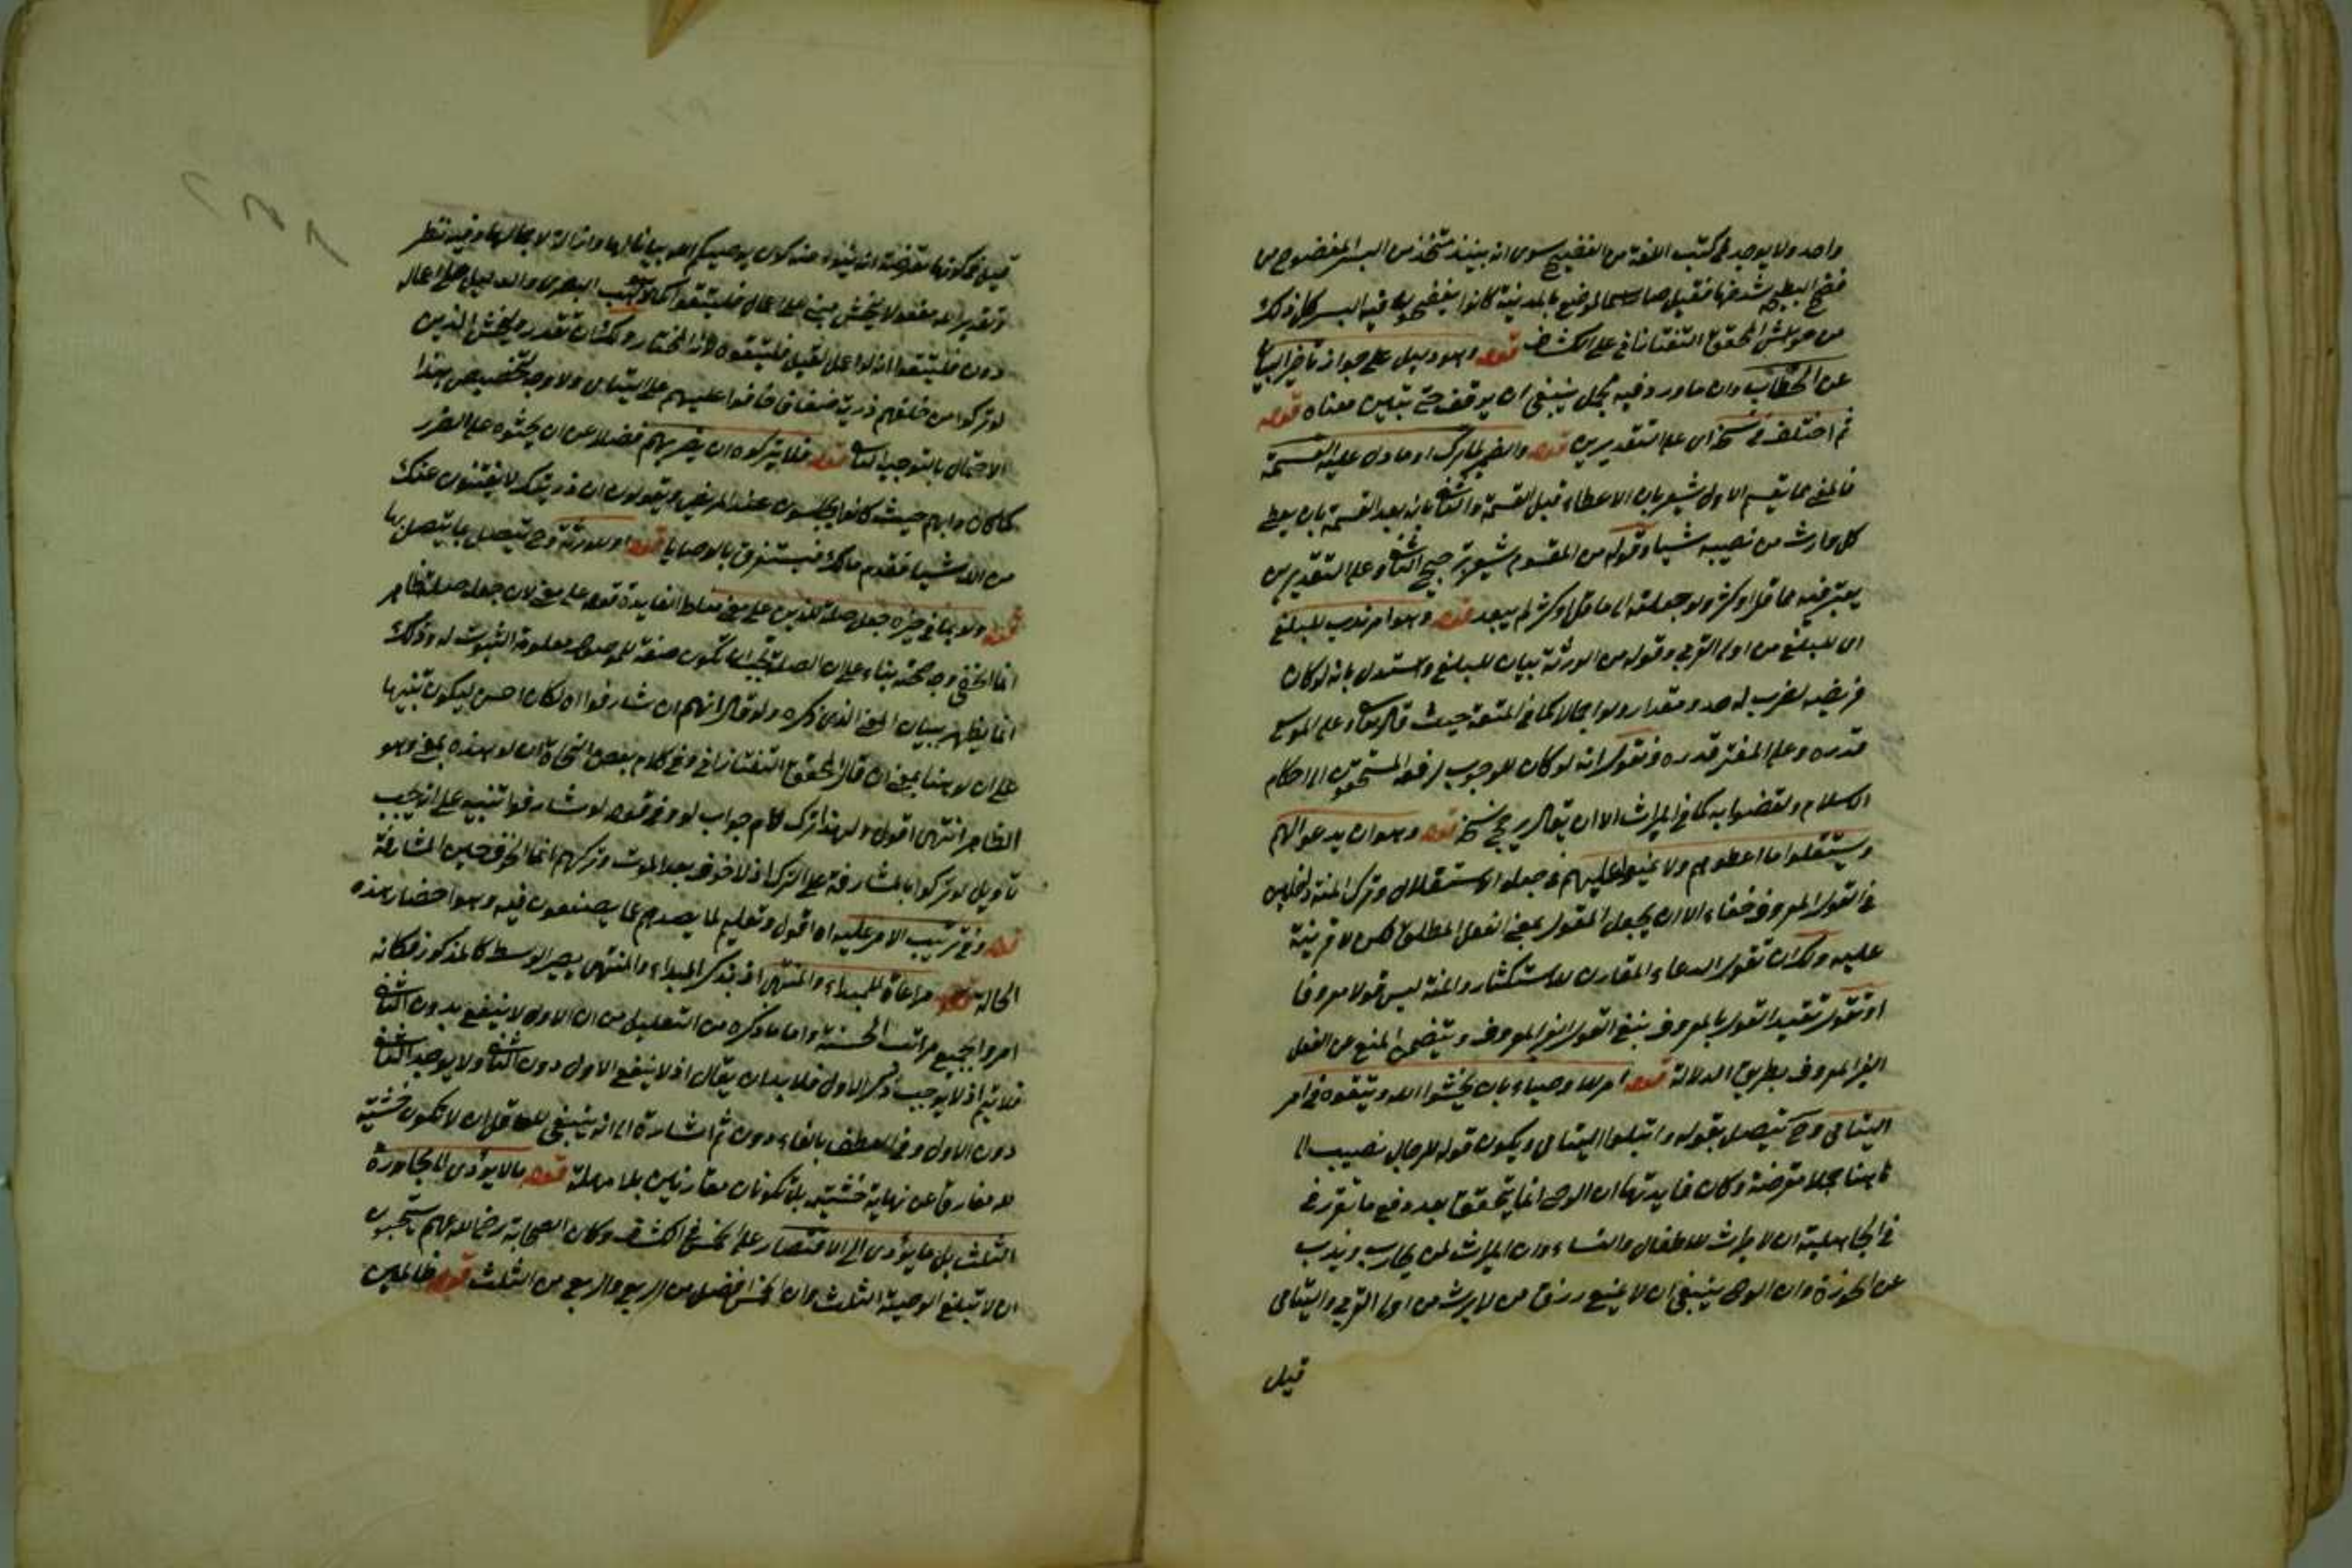 واحد ولا يوجد في كتب اللغة من الفضيح سوى انه نبيذ متخذ من البسر المفضوح من
فضح البطيخ شدخها فقيل صار اسما لموضع بالمدينة كانوا يفضحون فيه البسر كل ذلك
من حواشي المحقق التفتازاني على الكشاف قوله وهو دليل على جواز تاخير البيان
عن الخطاب وان ما ورد فيه مجمل ينبغي ان يوقف حتى يتبين معناه قوله
ثم اختلف في نسخه اى على التقديرين قوله والضمير لما ترك او ما دل عليه القسمة
فالمعنى مما يقسم الاول يشعر بان الاعطاء قبل القسمة والثاني بانه بعد القسمة بان يعطي
كل وارث من نصيبه شيا وقوله من المقسوم يشعر بترجيح الثاني وعلى التقديرين
يعتبر فيه مما قل او كثر ولو جعلته الى ما قل او كثر لم يبعد قوله وهو امر ندب للبلغ
اى للبلغ من اولى القربى وقوله من الورثة بيان للبلغ واستدل بانه لو كان
فريضة لضرب له حد ومقدار ولو اجمالا كما في المتعة حيث قال تعالى وعلى الموسع
قدره وعلى المقتر قدره ونقول انه لو كان للوجوب لرفعه المستحقون الى الاحكام
الاسلام ولقضوا به كما في الميراث الا ان يقال يرجح نسخه قوله وهو ان يدعوا لهم
ويستقلوا ما اعطوهم ولا يمنوا عليهم في جعلوا الاستقلال وترك المنة داخلين
في القول المعروف خفاء الا ان يجعل القول بمعنى الفعل المطلق لكن لا قرينة
عليه ولك ان تقول الدعاء المقارن للاستكثار والمنة ليس قولا معروفا
او نقول تقييد القول بالمعروف ينفي القول الغير المعروف ويتضمن المنع عن الفعل
الغير المعروف بطريق الدلالة قوله امر للاوصياء بان يخشوا الله ويتقوه في امر
اليتامى وح يتصل بقوله وابتلوا اليتامى ويكون قوله للرجال نصيب الى
هاهنا جملا معترضة وكان فايدتها ان الوصي انما يتحقق بعد دفع ما تقرر في
في الجاهلية ان لا ميراث للاطفال والنساء وان الميراث لمن يحارب ويذب
عن الحوزة وان الوصي ينبغي ان لا يمنع رزق من لا يرث من اولى القربى واليتامى
قيل
قيل في كونها معترضة انه يشذ عنه كون يوصيكم الله بيانا لها وازالة لاجمالها وفيه نظر
وتقدير الله مفعولا ليخش مبني على اعمال فليتقوا كما هو مذهب البصري والدليل على اعمال
دون فليتقوا انه لو اعمل لقيل فليتقوه لانه المختار ولك ان تقدر وليخش الذين
لو تركوا من خلفهم ذرية ضعافا خافوا عليهم على اليتامى ولا وجه لتخصيص هذا
الاحتمال بالتوجيه الثاني قوله فلا يتركوه ان يضر بهم فضلا عن ان يحثوه على الضرر
كما كان دابهم حيث كانوا يجلسون عند المريض ويقولون ان ذريتك لا يغنون عنك
من الله شيا فقدم مالك فيستغرق بالوصايا قوله او للورثة وح يتصل بما يتصل بها
قوله ولو بما في حيزه جعل صلة للذين على معنى مناط الفايدة قوله على معنى لان جعله صلة ظاهر
انما الخفي وجه صحته بناء على ان الصلة يجب ان تكون صفة للموصول معلومة الثبوت له وذلك
انما يظهر ببيان المعنى الذي ذكره ولو قال انهم ان شارفوا اه لكان احسن ليكون تنبيها
على ان لو هنا بمعنى ان قال المحقق التفتازاني وفي كلام بعض النحاة ان لو هذه بمعنى وهو
الظاهر انتهى اقول ولهذا ترك لام جواب لو وفي قوله لو شارفوا تنبيه على انه يجب
تاويل لو تركوا بالمشارفة على الترك اذ لا خوف بعد الموت وتركهم انما الخوف حين المشارفة
قوله وفي ترتيب الامر عليه اه اقول وتعليم لما يصدهم عما يصنعون فيه وهو احضار هذه
الحالة قوله مراعاة للمبداء والمنتهى اذ بذكر المبداء والمنتهى يصير الوسط كالمذكور فكانه
امروا بجميع مراتب الخشية واما ما ذكره من التعليل من ان الاول لا ينفع بدون الثاني
فلا يتم اذ لا يوجب ذكر الاول فلا بد ان يقال اذ لا ينفع الاول دون الثاني ولا يوجد الثاني
دون الاول وفي العطف بالفاء دون ثم اشارة الى انه ينبغي للعاقل ان لا تكون خشيته
له مفارقا عن نهاية خشيته بل تكونان متقارنين بلا مهلة قوله ما لا يؤدى الى مجاوزة
الثلث بل ما يؤدى الى الاقتصار على الخمس في الكشاف وكان الصحابة رضي الله عنهم يستحبون
ان لا تبلغ الوصية الثلث وان الخمس افضل من الربع والربع من الثلث قوله ظالمين